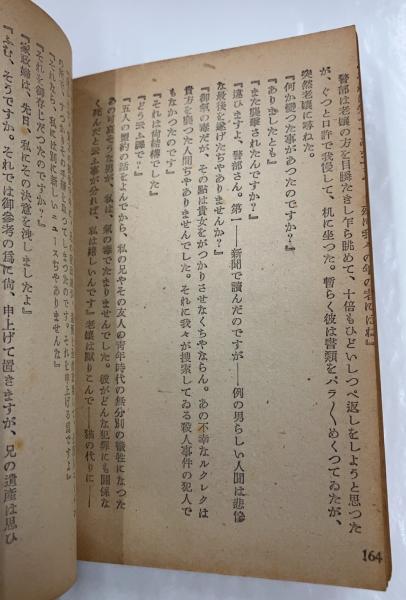 警部は老孃の方を目瞬たきし乍ら眺めて、十倍もひどいしつぺ返しをしようと思つた
が、ぐつと口許で我慢して、机に坐つた。暫らく彼は書類をパラ〳〵めくつてゐたが、
突然老孃に尋ねた。
『何か變つた事があつたのですか？』
『ありましたとも』
『また襲撃されたんですか？』
『違ひますよ、警部さん。第一――新聞で讀んだのですが――例の男らしい人間は悲慘
な最後を遂げたぢやありませんか？』
『御氣の毒だが、その點は貴女をがつかりさせなくちやならん。あの不幸なルクレクは
貴方を襲つた人間ぢやありませんでした。それに我々が捜索してゐる殺人事件の犯人で
もなかつたのです』
『それは尙結構でした』
『どう云ふ譯で？』
『五人の盟約の話をよんでから、私の兄やその友人の靑年時代の無分別の犧牲になつた
あの可哀さうな男が、私は、氣の毒でたまりませんでした。彼がどんな犯罪にも關係な
く死んだと云ふ事が分れば、私は嬉しいんです』老孃は默りこんで――猫の代りに――
それを申上げる爲ですよ』
『それなら、私には別に新しいニュースぢやありませんな』
『それを御存じだつたのですか？』
『家政婦は、先日、私にその決意を洩しましたよ』
『ふむ、そうですか。それでは御參考の爲に尙、申上げて置きますが、兄の遺產は思ひ
164